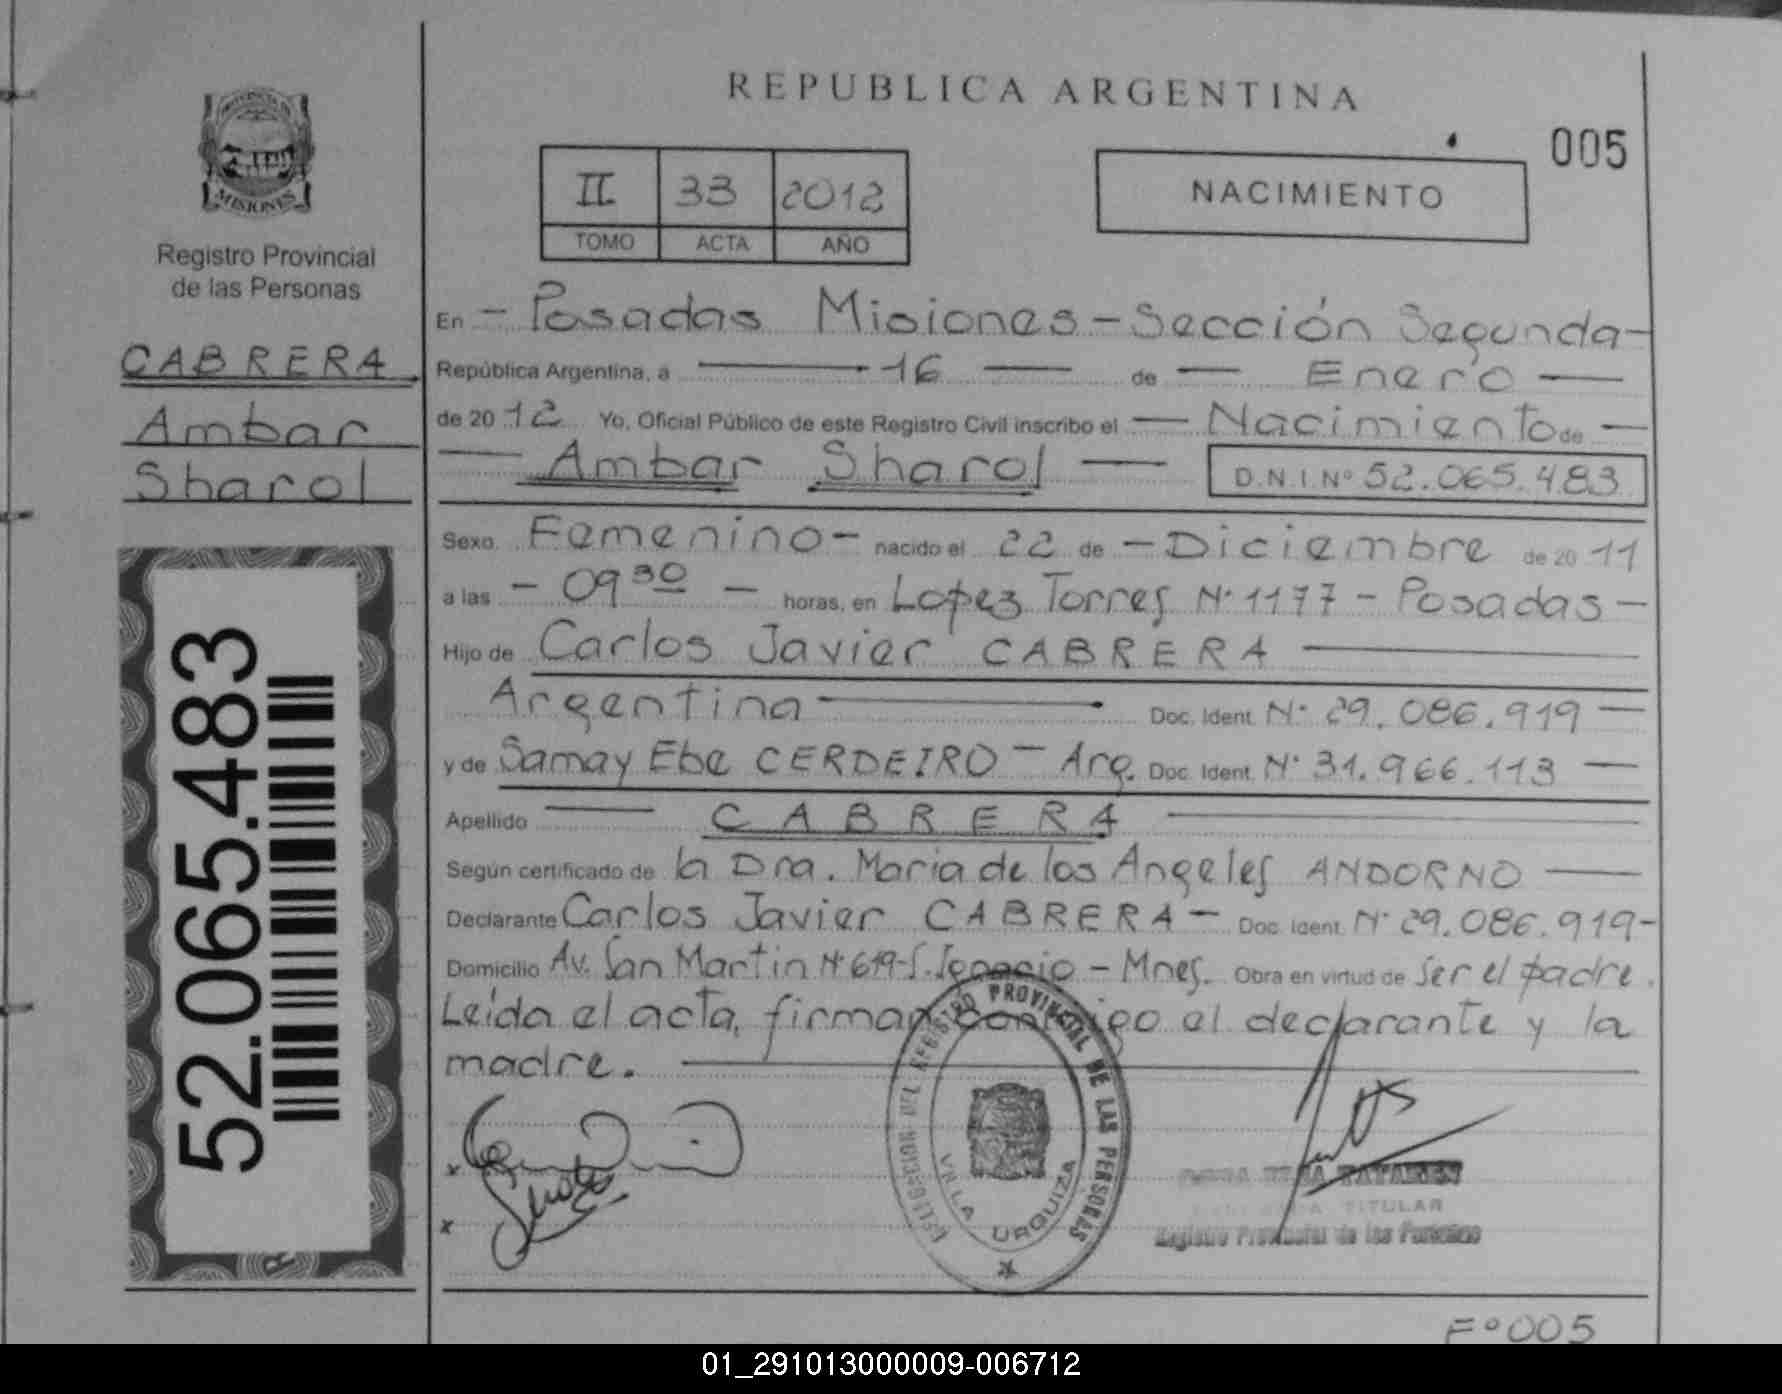 REPUBLICA ARGENTINA
005
PROVINCIA DE
MISIONES
Registro Provincial
de las Personas
CABRERA
Ambar
Sharol
52.065.483
II 33 2012
TOMO ACTA AÑO
NACIMIENTO
En - Posadas Misiones - Sección Segunda -
República Argentina, a 16 de Enero
de 2012 Yo, Oficial Público de este Registro Civil inscribo el Nacimiento de
Ambar Sharol D.N.I.Nº 52.065.483
Sexo Femenino - nacido el 22 de - Diciembre de 2011
a las - 09 30 - horas, en Lopez Torres Nº 1177 - Posadas -
Hijo de Carlos Javier CABRERA
Argentina Doc. Ident. Nº 29.086.919
y de Samay Ebe CERDEIRO - Arg. Doc. Ident. Nº 31.966.113
Apellido CABRERA
Según certificado de la Dra. Maria de los Angeles ANDORNO
Declarante Carlos Javier CABRERA - Doc. Ident. Nº 29.086.919 -
Domicilio Av. San Martin Nº 619 - S. Ignacio - Mnes. Obra en virtud de Ser el padre.
Leída el acta, firman conmigo el declarante y la
madre.
DEL REGISTRO PROVINCIAL DE LAS PERSONAS
VILLA URQUIZA
TITULAR
Registro Provincial de las Personas
Fº 005
01_291013000009-006712